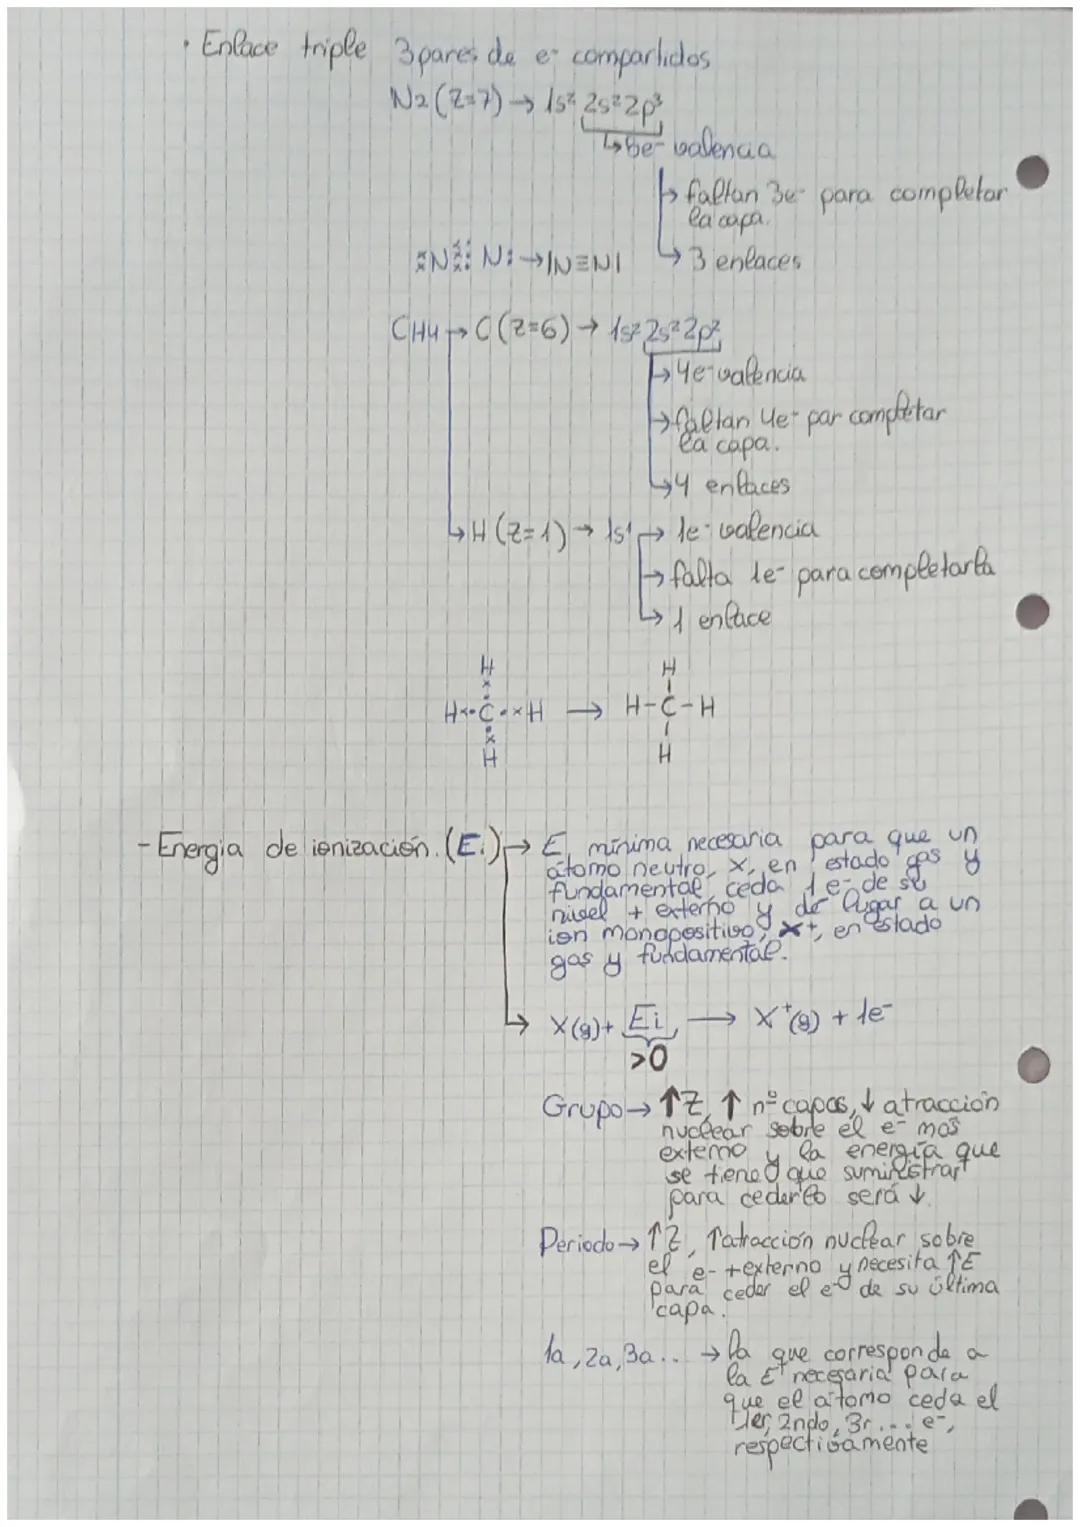 · Enlace triple 3 pares de e- compartidos
N2 (Z=7) → 1s² 2s² 2p³
↳ 5e- valencia
→ faltan 3e- para completar
la capa.
N N: → |N≡N| ↳ 3 enlaces
CH4 → C (Z=6) → 1s² 2s² 2p²
→ 4e- valencia
→ faltan 4e- par completar
la capa.
↳ 4 enlaces
↳ H (Z=1) → 1s¹ → 1e- valencia
→ falta 1e- para completarla
↳ 1 enlace
H H
H×·C·×H → H-C-H
H H
- Energia de ionización. (Ei) → E mínima necesaria para que un
átomo neutro, X, en estado gas y
fundamental, ceda 1e- de su
nivel + externo y dé lugar a un
ion monopositivo, X+, en estado
gas y fundamental.
↳ X(g) + Ei → X⁺(g) + 1e⁻
>0
Grupo → ↑Z, ↑ nº capas, ↓ atracción
nuclear sobre el e- mas
externo y la energía que
se tiene que suministrar
para cederlo será ↓.
Periodo → ↑Z, ↑atracción nuclear sobre
el e- +externo y necesita ↑E
para ceder el e- de su última
capa.
1a, 2a, 3a.. → la que corresponde a
la E necesaria para
que el átomo ceda el
1er, 2ndo, 3r ... e-,
respectivamente